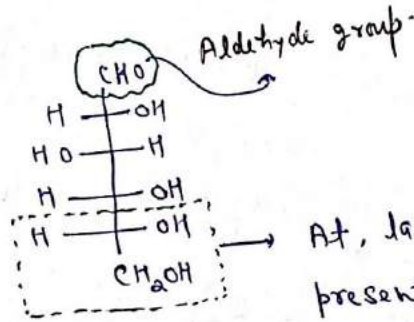 Aldehyde group.
CHO
H OH
HO H
H OH
H OH
CH₂OH
At, la
presen